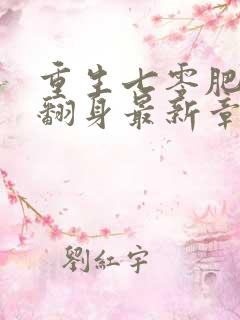 重生七零肥
翻身最新章
劉紅宇